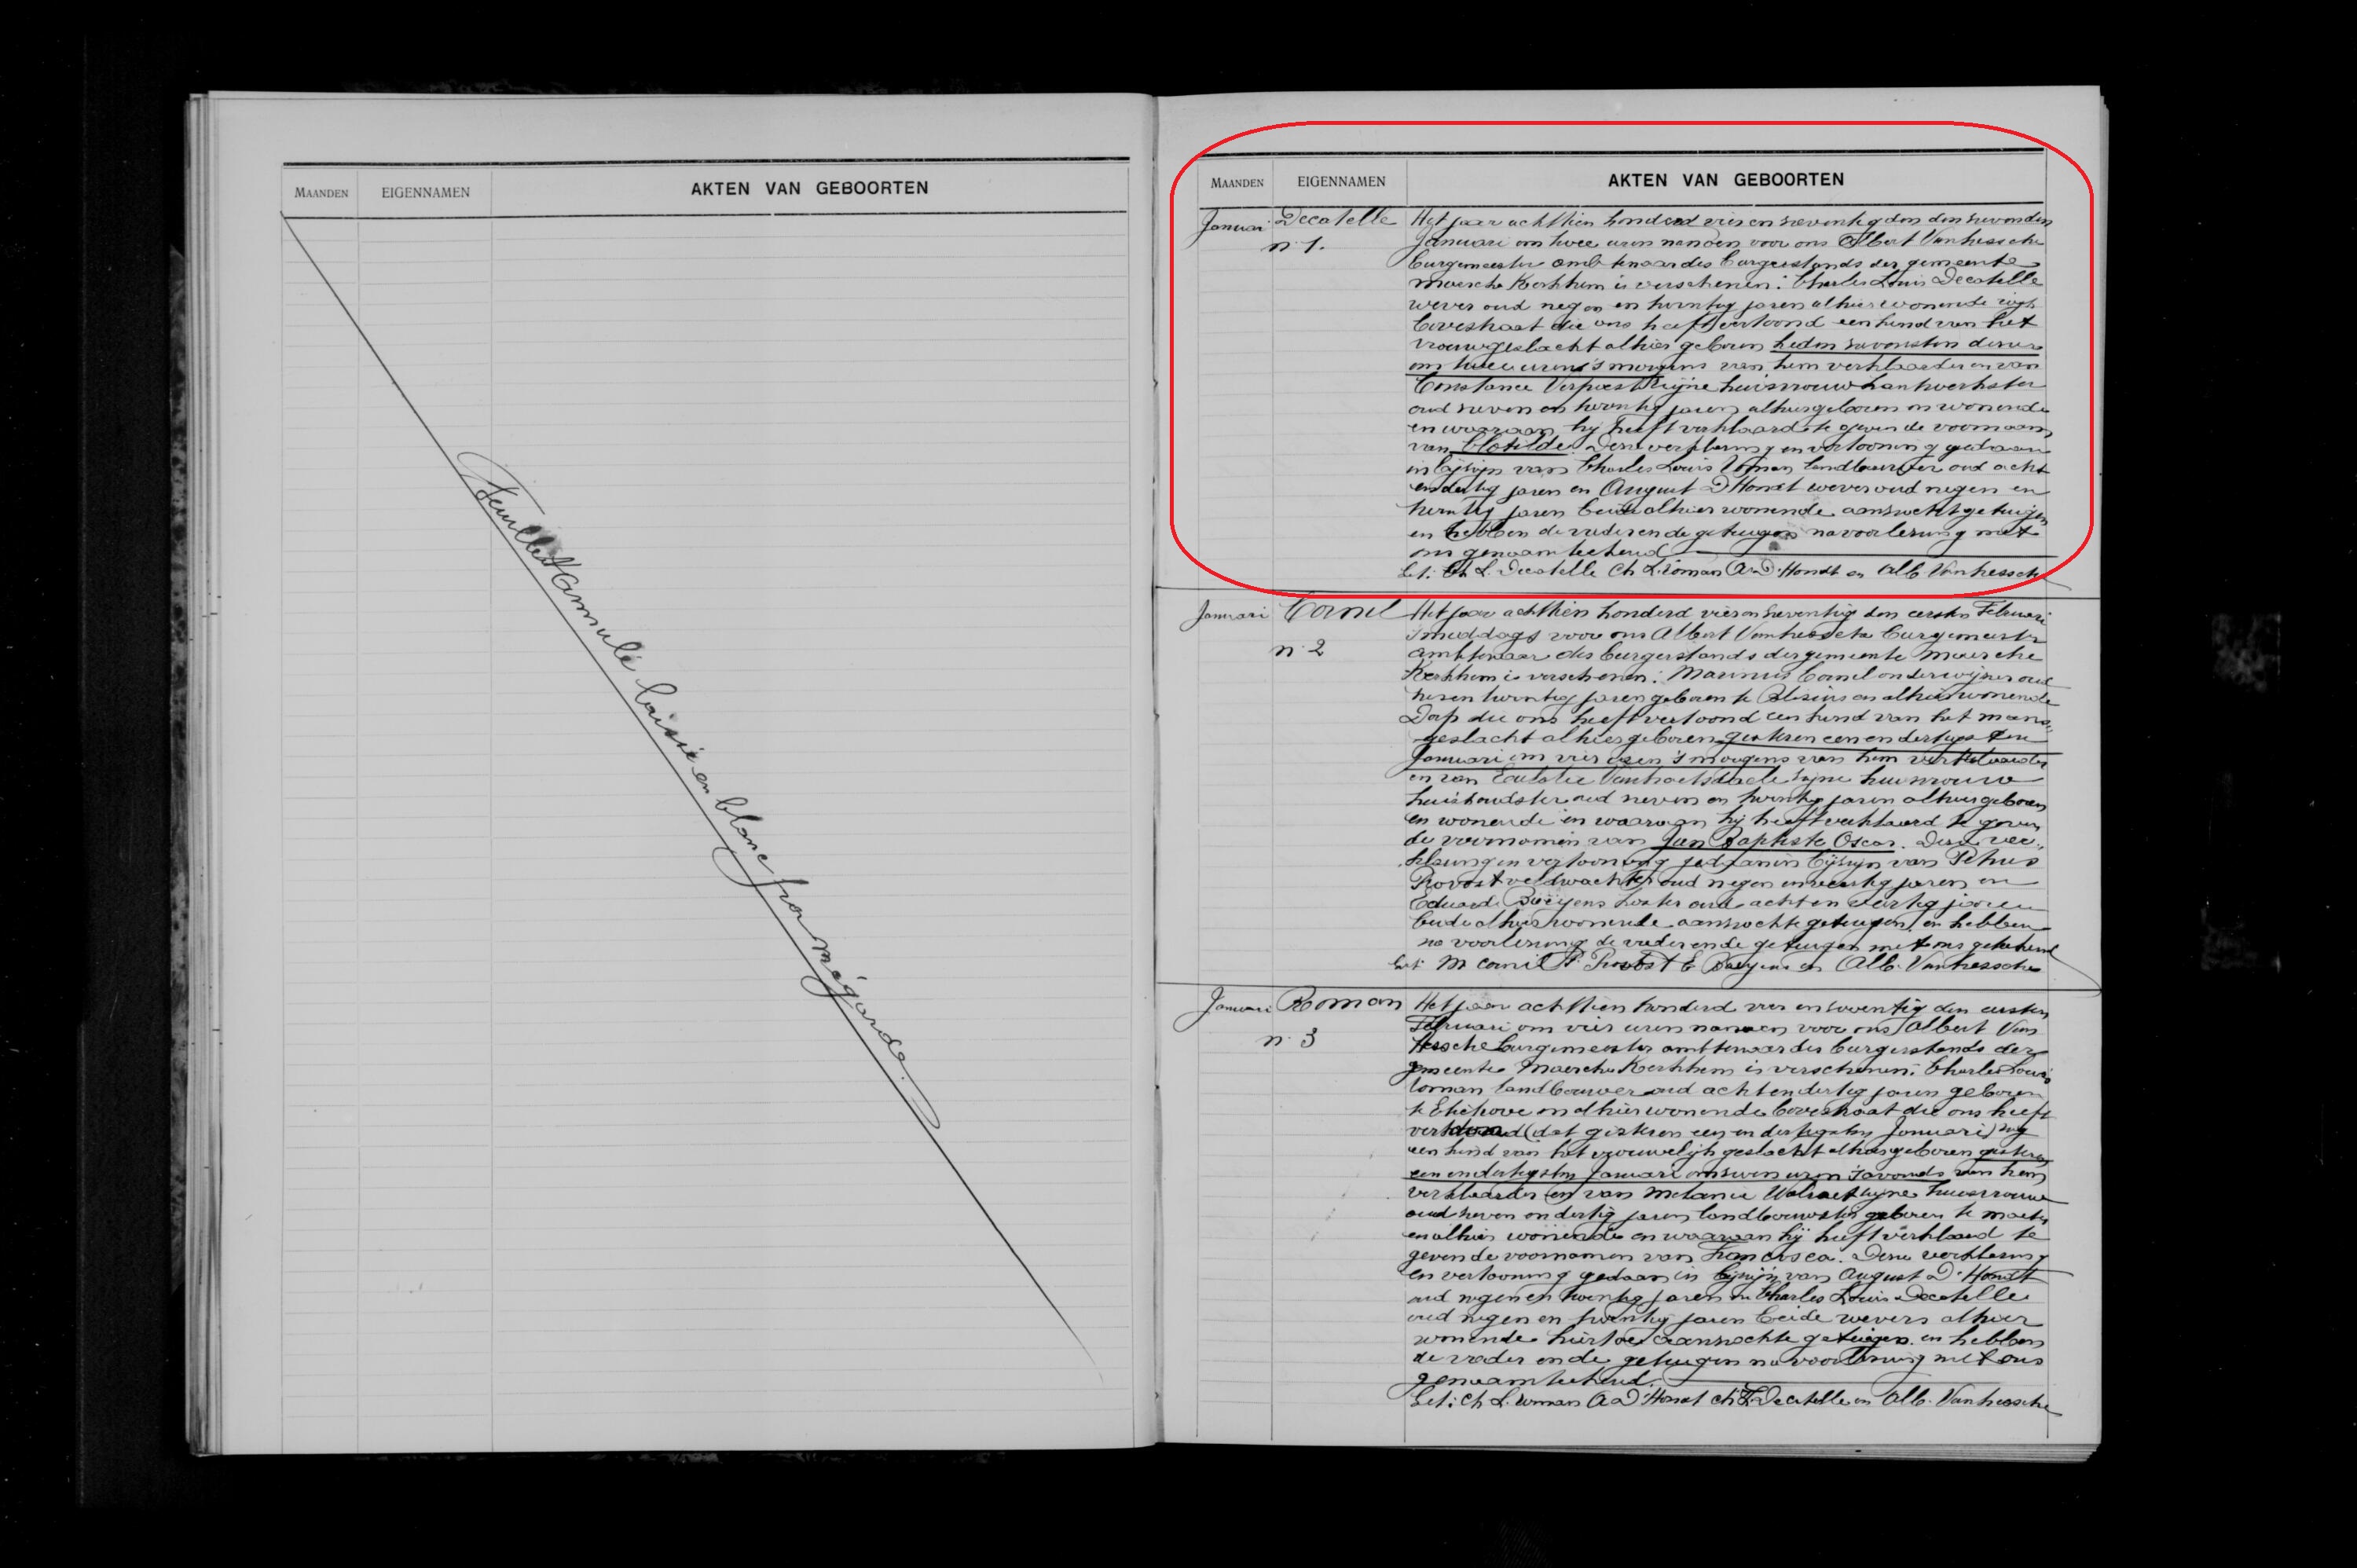 MAANDEN EIGENNAMEN AKTEN VAN GEBOORTEN
Feuillet annulé laissé en blanc par mégarde.
MAANDEN EIGENNAMEN AKTEN VAN GEBOORTEN
Januari Decatelle Het jaar achttien honderd vier en zeventig den den zevenden
n 1. Januari om twee uren nanoen voor ons Albert Vanhessche
burgemeester ambtenaar des burgerstands der gemeente
Maercke Kerkhem is verschenen: Charles Louis Decatelle
wever oud negen en twintig jaren alhier wonende wijk
Coverstraat die ons heeft vertoond een kind van het
vrouwgeslacht alhier geboren heden zevensten dezer
om twee uren 's morgens van hem verklaarder en van
Constance Verpoest zijne huisvrouw
oud zeven en twintig jaren alhier geboren en wonende
en waaraan hij heeft verklaard te geven de voornaam
van Clotilde. Deze verklaring en vertooning gedaan
in bijzijn van Charles Louis Loman landbouwer oud acht
en dertig jaren en August D'Hondt wever oud negen en
twintig jaren beide alhier wonende aanzochte getuigen
en hebben de vader en de getuigen na voorlezing met
ons genaamteekend
Get: Ch L. Decatelle Ch L. Loman A D'Hondt en Alb. Vanhessche
Januari Cornil Het jaar achttien honderd vier en zeventig den eersten Februari
n 2 's middags voor ons Albert Vanhessche burgemeester
ambtenaar des burgerstands der gemeente Maercke
Kerkhem is verschenen: Marinus Cornil onderwijzer oud
twintig jaren geboren te en alhier wonende
Dorp die ons heeft vertoond een kind van het mans
geslacht alhier geboren gisteren een en dertigsten
Januari om vier uren 's morgens van hem verklaarder
en van Eulalie zijne huisvrouw
huishoudster oud zeven en twintig jaren alhier geboren
en wonende en waaraan hij heeft verklaard te geven
de voornamen van Jan Baptiste Oscar. Deze ver
klaring en vertooning gedaan in bijzijn van Petrus
Provost veldwachter oud negen en veertig jaren en
Eduard Baeyens koster oud acht en veertig jaren
beide alhier wonende aanzochte getuigen en hebben
na voorlezing de vader en de getuigen met ons geteekend
Get: M Cornil P. Provost E Baeyens en Alb. Vanhessche
Januari Roman Het jaar achttien honderd vier en zeventig den eersten
n 3 Februari om vier uren nanoen voor ons Albert Van
Hessche burgemeester ambtenaar des burgerstands der
gemeente Maercke Kerkhem is verschenen: Charles Louis
Loman landbouwer oud acht en dertig jaren geboren
te Etichove en alhier wonende Coverstraat die ons heeft
(dat gisteren een en dertigsten Januari)
een kind van het vrouwelijk geslacht alhier geboren gisteren
een en dertigsten Januari om zeven uren 's avonds van hem
verklaarder en van Melanie zijne huisvrouw
oud zeven en dertig jaren landbouwster geboren te Mater
en alhier wonende en waaraan hij heeft verklaard te
geven de voornamen van Francisca. Deze verklaring
en vertooning gedaan in bijzijn van August D'Hondt
oud negen en twintig jaren en Charles Louis Decatelle
oud negen en twintig jaren beide wevers alhier
wonende hiertoe aanzochte getuigen en hebben
de vader en de getuigen na voorlezing met ons
genaamteekend.
Get: Ch L. Loman A D'Hondt Ch L Decatelle en Alb. Vanhessche